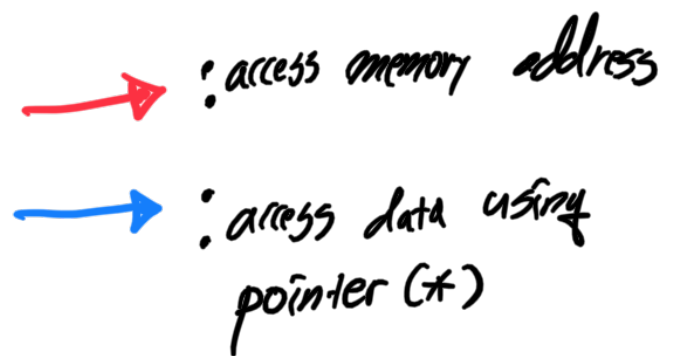 : access memory address
: access data using
pointer (*)